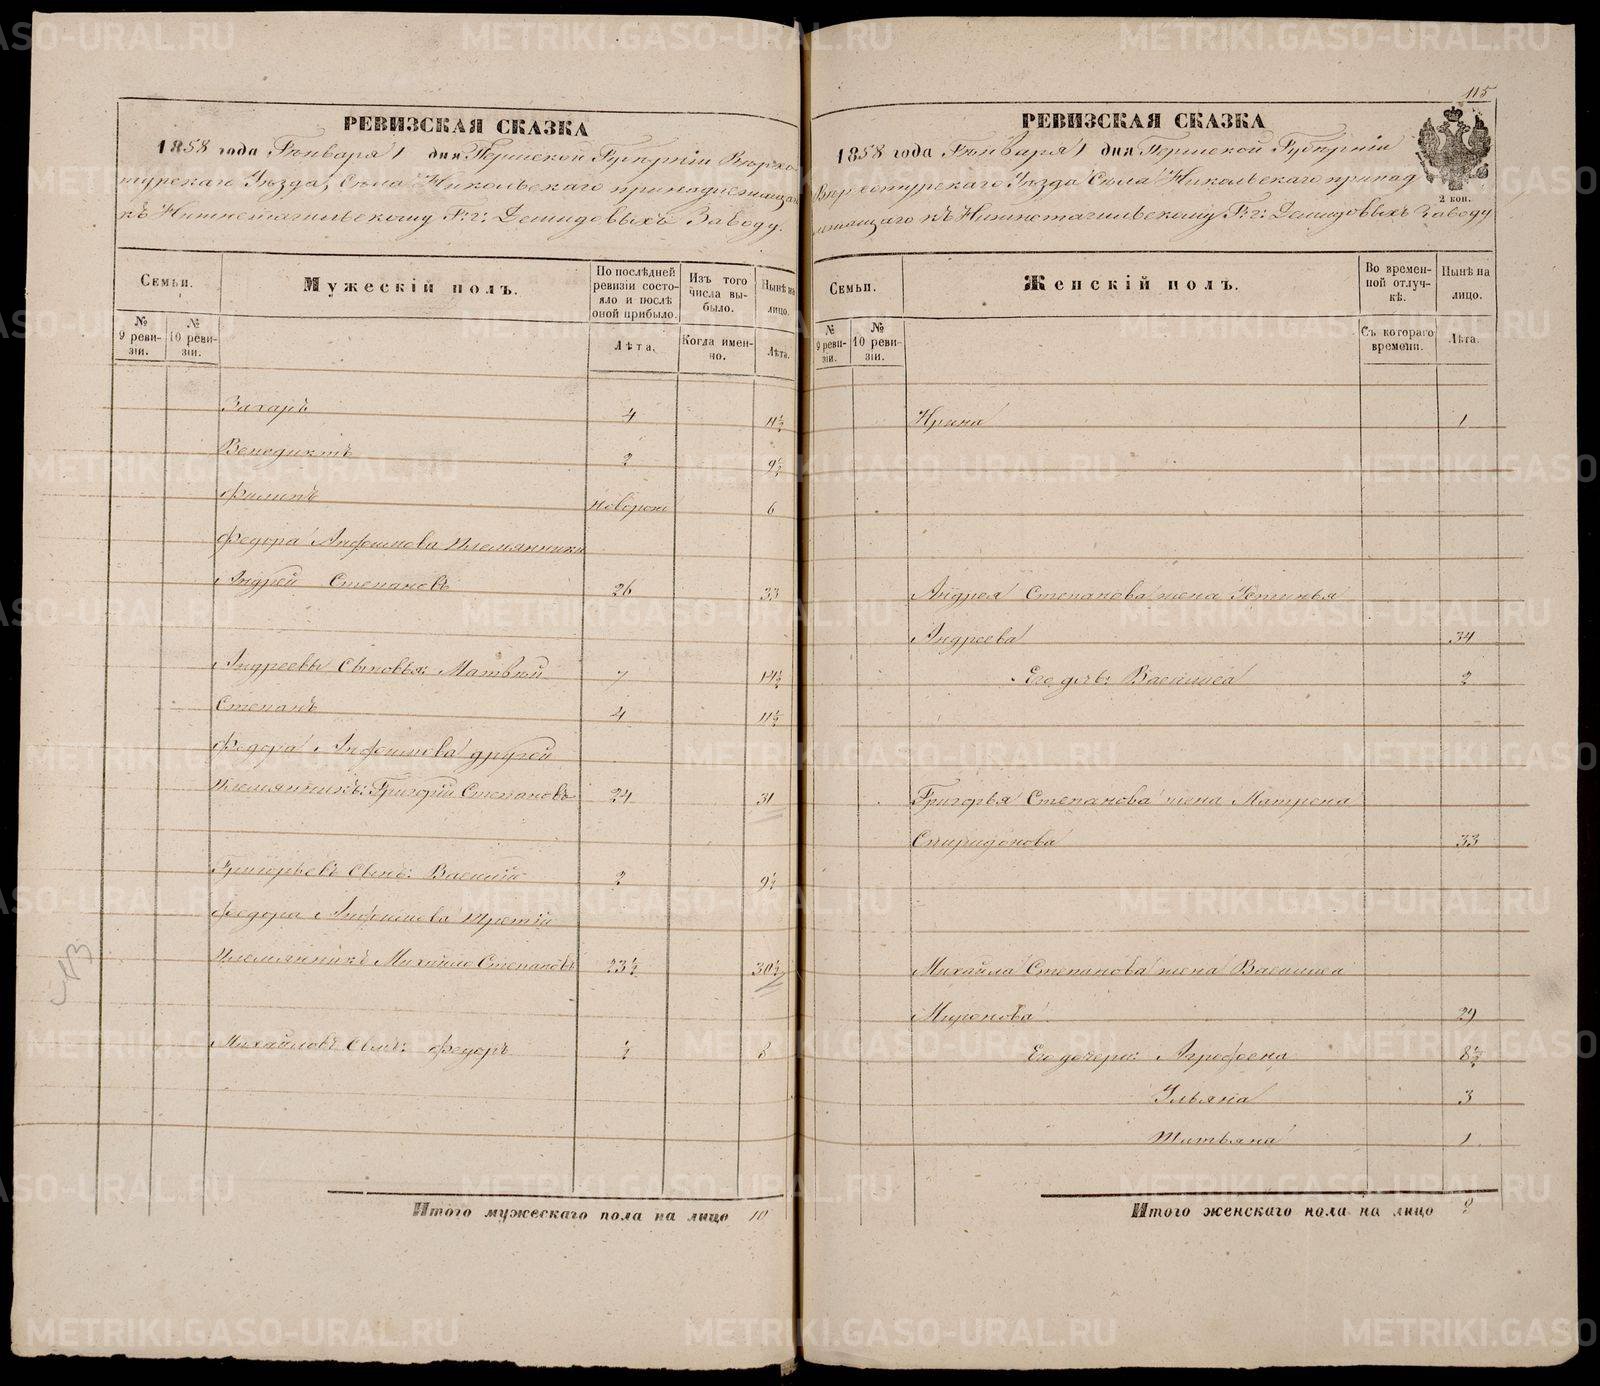 115
РЕВИЗСКАЯ СКАЗКА
1858 года Генваря 1 дня Пермской Губернiи Верхо-
турскаго Уѣзда, Села Никольскаго принадлежащаго
къ Нижнетагильскому Г.г: Демидовыхъ Заводу.
Семьи.
Мужескiй полъ.
По послѣдней ревизiи состояло и послѣ оной прибыло.
Изъ того числа выбыло.
Нынѣ на лицо.
№ 9 ревизiи.
№ 10 ревизiи.
Лѣта.
Когда именно.
Лѣта.
Захаръ 4 11½
Венедиктъ 2 9½
Филипъ новорож 6
Федора Анфимова Племянники
Андрей Степановъ 26 33
Андреевы Сыновья: Матвѣй 7 14½
Степанъ 4 11½
Федора Анфимова другой
Племянникъ: Григорiй Степановъ 24 31
Григорьевъ Сынъ: Василiй 2 9½
Федора Анфимова Третiй
Племянникъ Михайло Степановъ 23½ 30½
Михайловъ Сынъ: Федоръ ½ 8
Итого мужескаго пола на лицо 10
РЕВИЗСКАЯ СКАЗКА
1858 года Генваря 1 дня Пермской Губернiи
Верхотурскаго Уѣзда Села Никольскаго принад
лежащаго къ Нижнетагильскому Г.г: Демидовыхъ Заводу
2 коп.
Семьи.
Женскiй полъ.
Во временной отлучкѣ.
Нынѣ на лицо.
№ 9 ревизiи.
№ 10 ревизiи.
Съ котораго времени.
Лѣта.
Ирина 1
Андрея Степанова жена Устинья
Андреева 34
Его дчь: Василиса 2
Григорья Степанова жена Матрена
Спиридонова 33
Михайла Степанова жена Василиса
Миронова 29
Его дочери: Агрофена 8½
Ульяна 3
Татьяна 1
Итого женскаго пола на лицо
METRIKI.GASO-URAL.RU